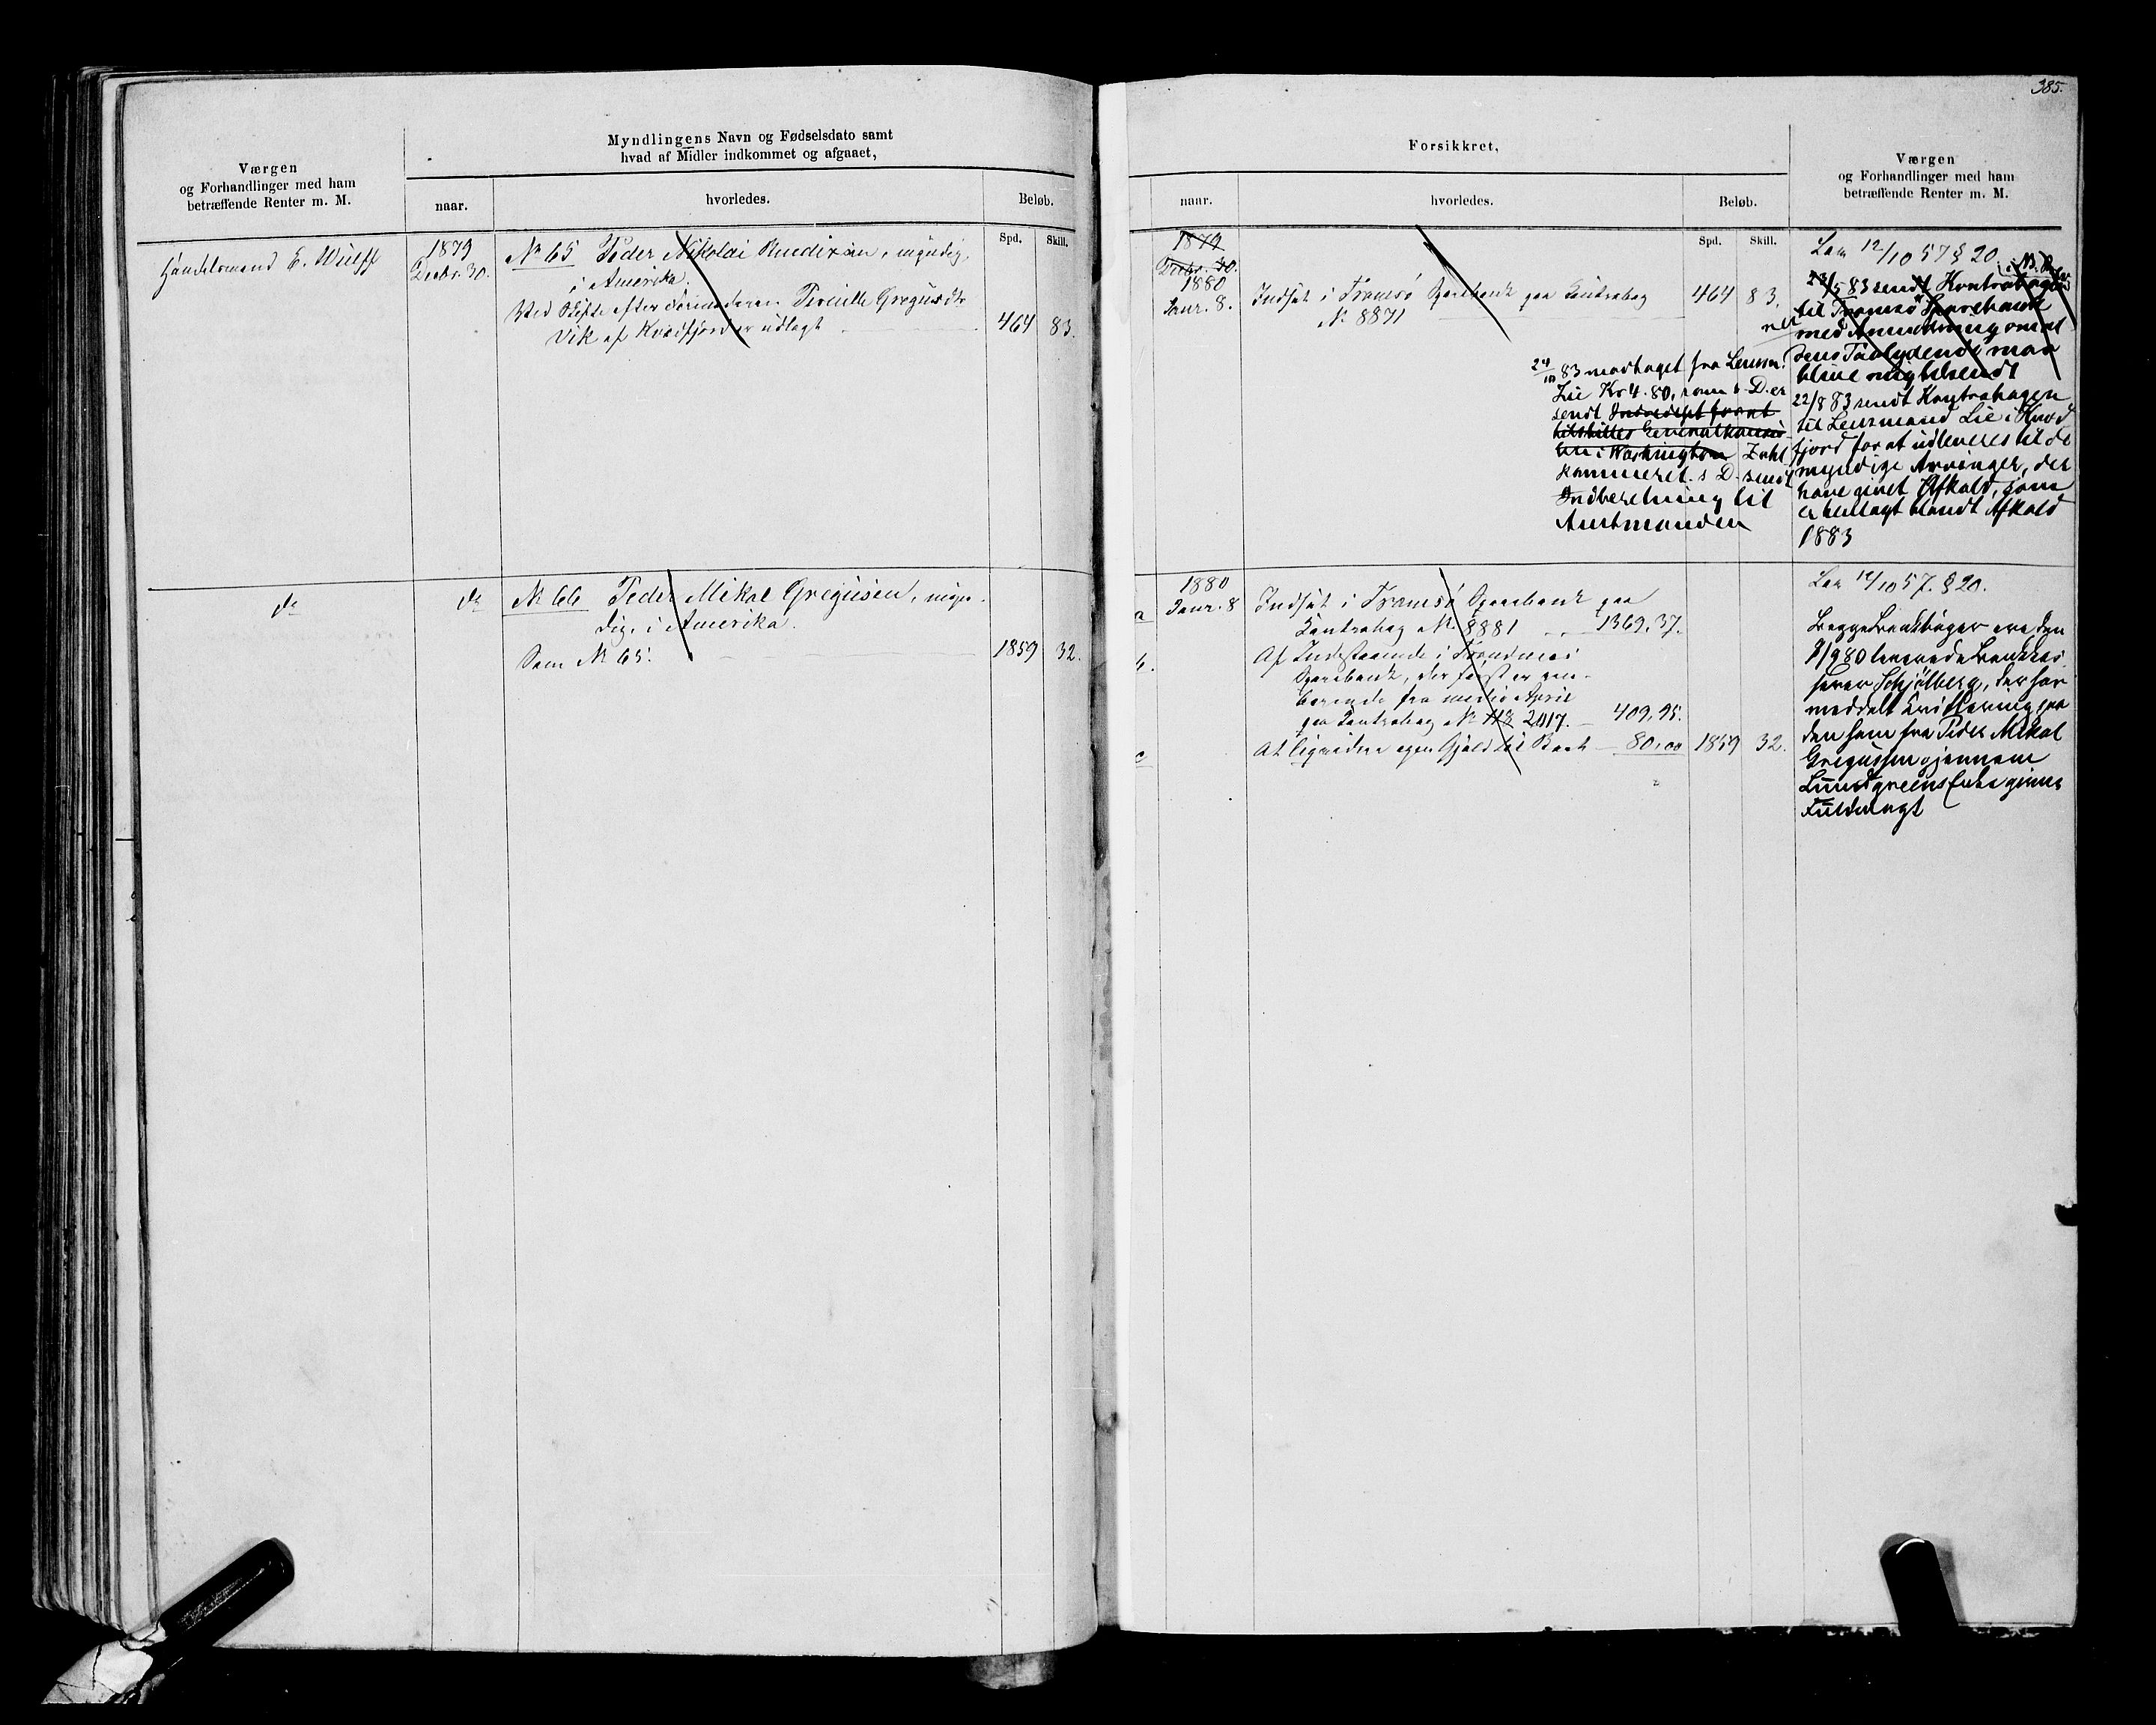 385.
Værgen
og Forhandlinger med ham
betræffende Renter m. M.
Myndlingens Navn og Fødselsdato samt
hvad af Midler indkommet og afgaaet,
naar.
hvorledes.
Beløb.
Spd. Skill.
Handelsmand E. Wulff
1879
Decbr. 30.
No 65 Peder Nikolai Knudsen, myndig,
i Amerika.
Ved Skifte efter Pernille Gregusdtr
Vik af Kvædfjord er udlagt
464 83.
do
do
No 66 Peder Mikal Gregusen, myn-
dig, i Amerika.
Som No 65.
1859 32.
Forsikkret,
naar.
hvorledes.
Beløb.
Værgen
og Forhandlinger med ham
betræffende Renter m. M.
Spd. Skill.
1879
Decbr. 30.
1880
Janr. 8.
Indsat i Tromsø Sparebank paa Kontrabog
No 8871
464 83.
24/10 83 modtaget fra Lensm.
Lie Kr 4.80, som s. D. er
sendt
tilstilles Generalkonsu-
len i Washington Zahl
kammeret. s. D. sendt
Indberetning til
Amtmanden
Lov 12/10 57 § 20.
23/5 83 sendt Kontrabogen
til Tromsø Sparebank
med Anmodning om at
blive mig tilsendt
22/8 83 sendt Kontrabogen
til Lensmand Lie i Kvæd
fjord for at udleveres til de
myndige Arvinger, der
have givet Afkald, som
er henlagt blandt Afkald
1883
1880
Janr. 8
a
Indsat i Tromsø Sparebank paa
Kontrabog No 8881 1369,37.
b.
Af Indestaaende i Trondenes
Sparebank, der først er ren-
tebærende fra medio April
paa Kontrabog No 118 2017. 409,95.
c
At liqvidere egen Gjæld til Boet 80,00
1859 32.
Lov 12/10 57. § 20.
Begge Bankbøger ere den
8/9 80 leverede Bankkas-
serer Schjølberg, der har
meddelt Kvittering paa
den ham fra Peder Mikal
Gregussen gjennem
Lundgreens Enke givne
Fuldmagt